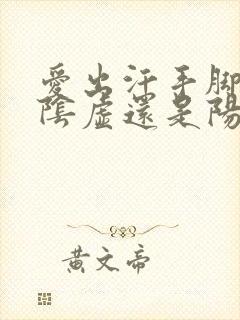 愛出汗手腳
陰虛還是陽
黃文帝